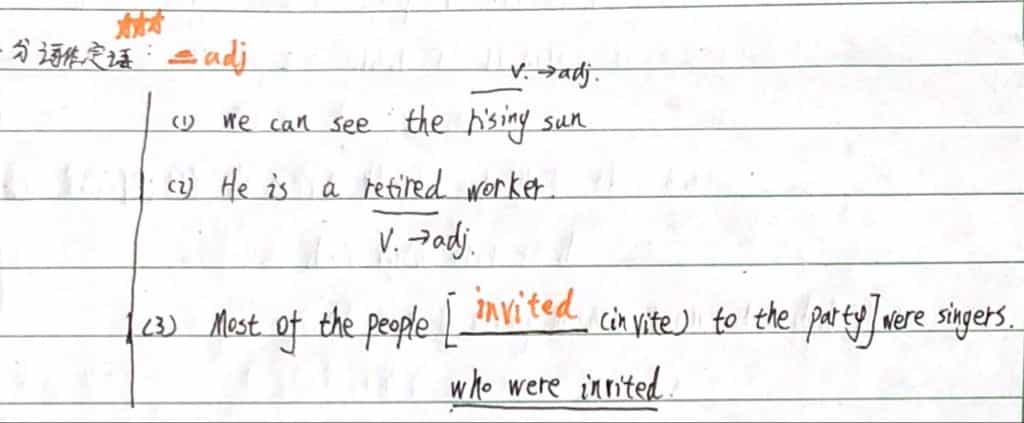 分词作定语: = adj
V. → adj.
(1) We can see the rising sun
(2) He is a retired worker.
V. → adj.
(3) Most of the people [ invited (invite) to the party] were singers.
who were invited.